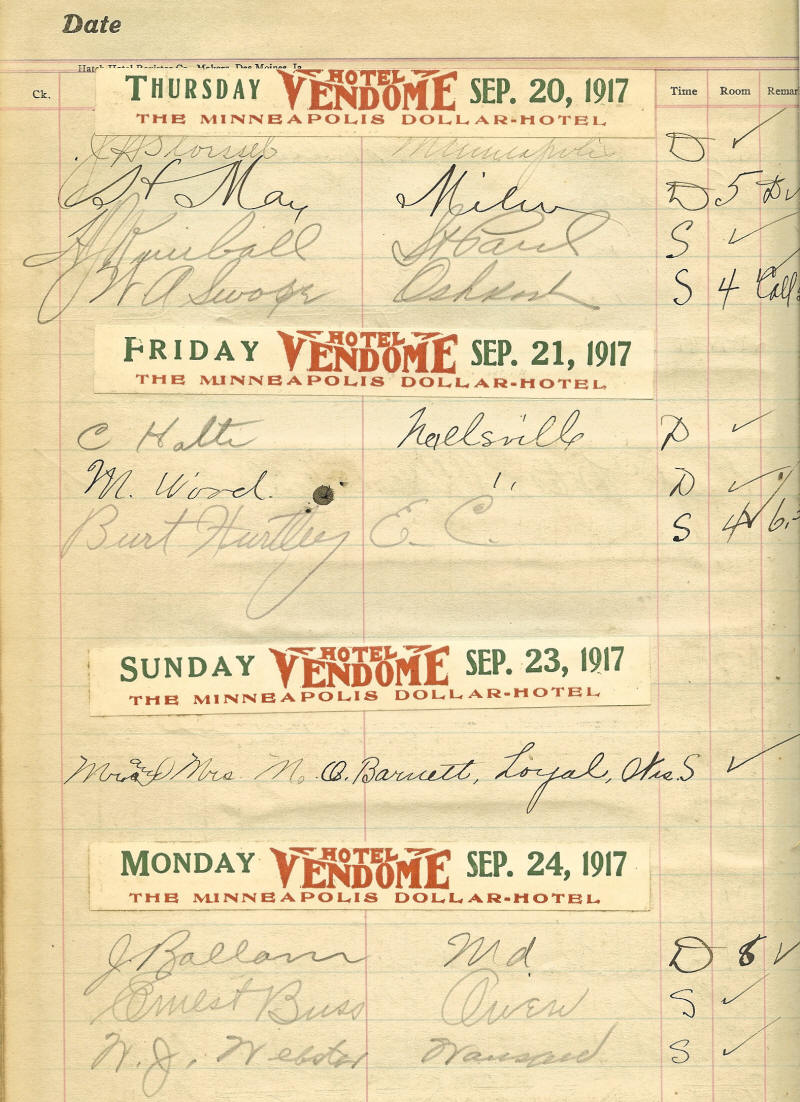 Date
Hatch Hotel Register Co., Makers, Des Moines, Ia.
Ck. Time Room Remar
THURSDAY HOTEL VENDOME SEP. 20, 1917
THE MINNEAPOLIS DOLLAR-HOTEL
Minneapolis D ✓
H May Milw D 5 D
Kimball St Paul S ✓
W A Swope Oshkosh S 4 Call
FRIDAY HOTEL VENDOME SEP. 21, 1917
THE MINNEAPOLIS DOLLAR-HOTEL
C Halti Neillsville D ✓
M. Wood. " D ✓
Burt Hurtley E. C. S 4 6.3
SUNDAY HOTEL VENDOME SEP. 23, 1917
THE MINNEAPOLIS DOLLAR-HOTEL
Mr. and Mrs N. O. Barnett, Loyal, Wis. S ✓
MONDAY HOTEL VENDOME SEP. 24, 1917
THE MINNEAPOLIS DOLLAR-HOTEL
J. Ballam Md D 8 ✓
Ernest Buss Owen S ✓
W. J. Webster S ✓